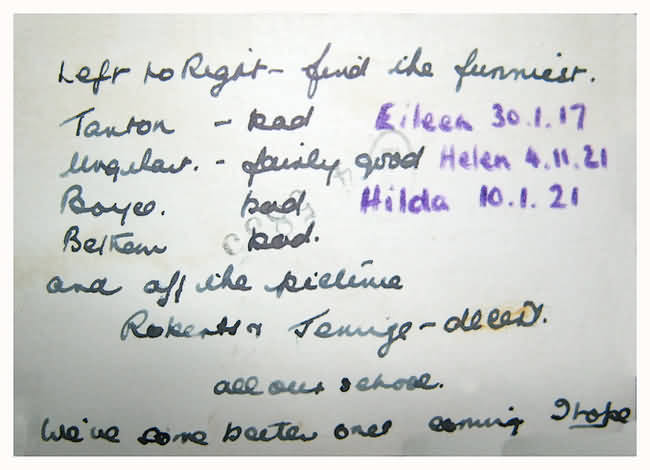 Left to Right - find the funniest.
Tanton - bad Eileen 30.1.17
- fairly good Helen 4.11.21
Boyce. bad Hilda 10.1.21
bad.
and off the picture
Roberts &
all our school.
We've some better ones coming I hope